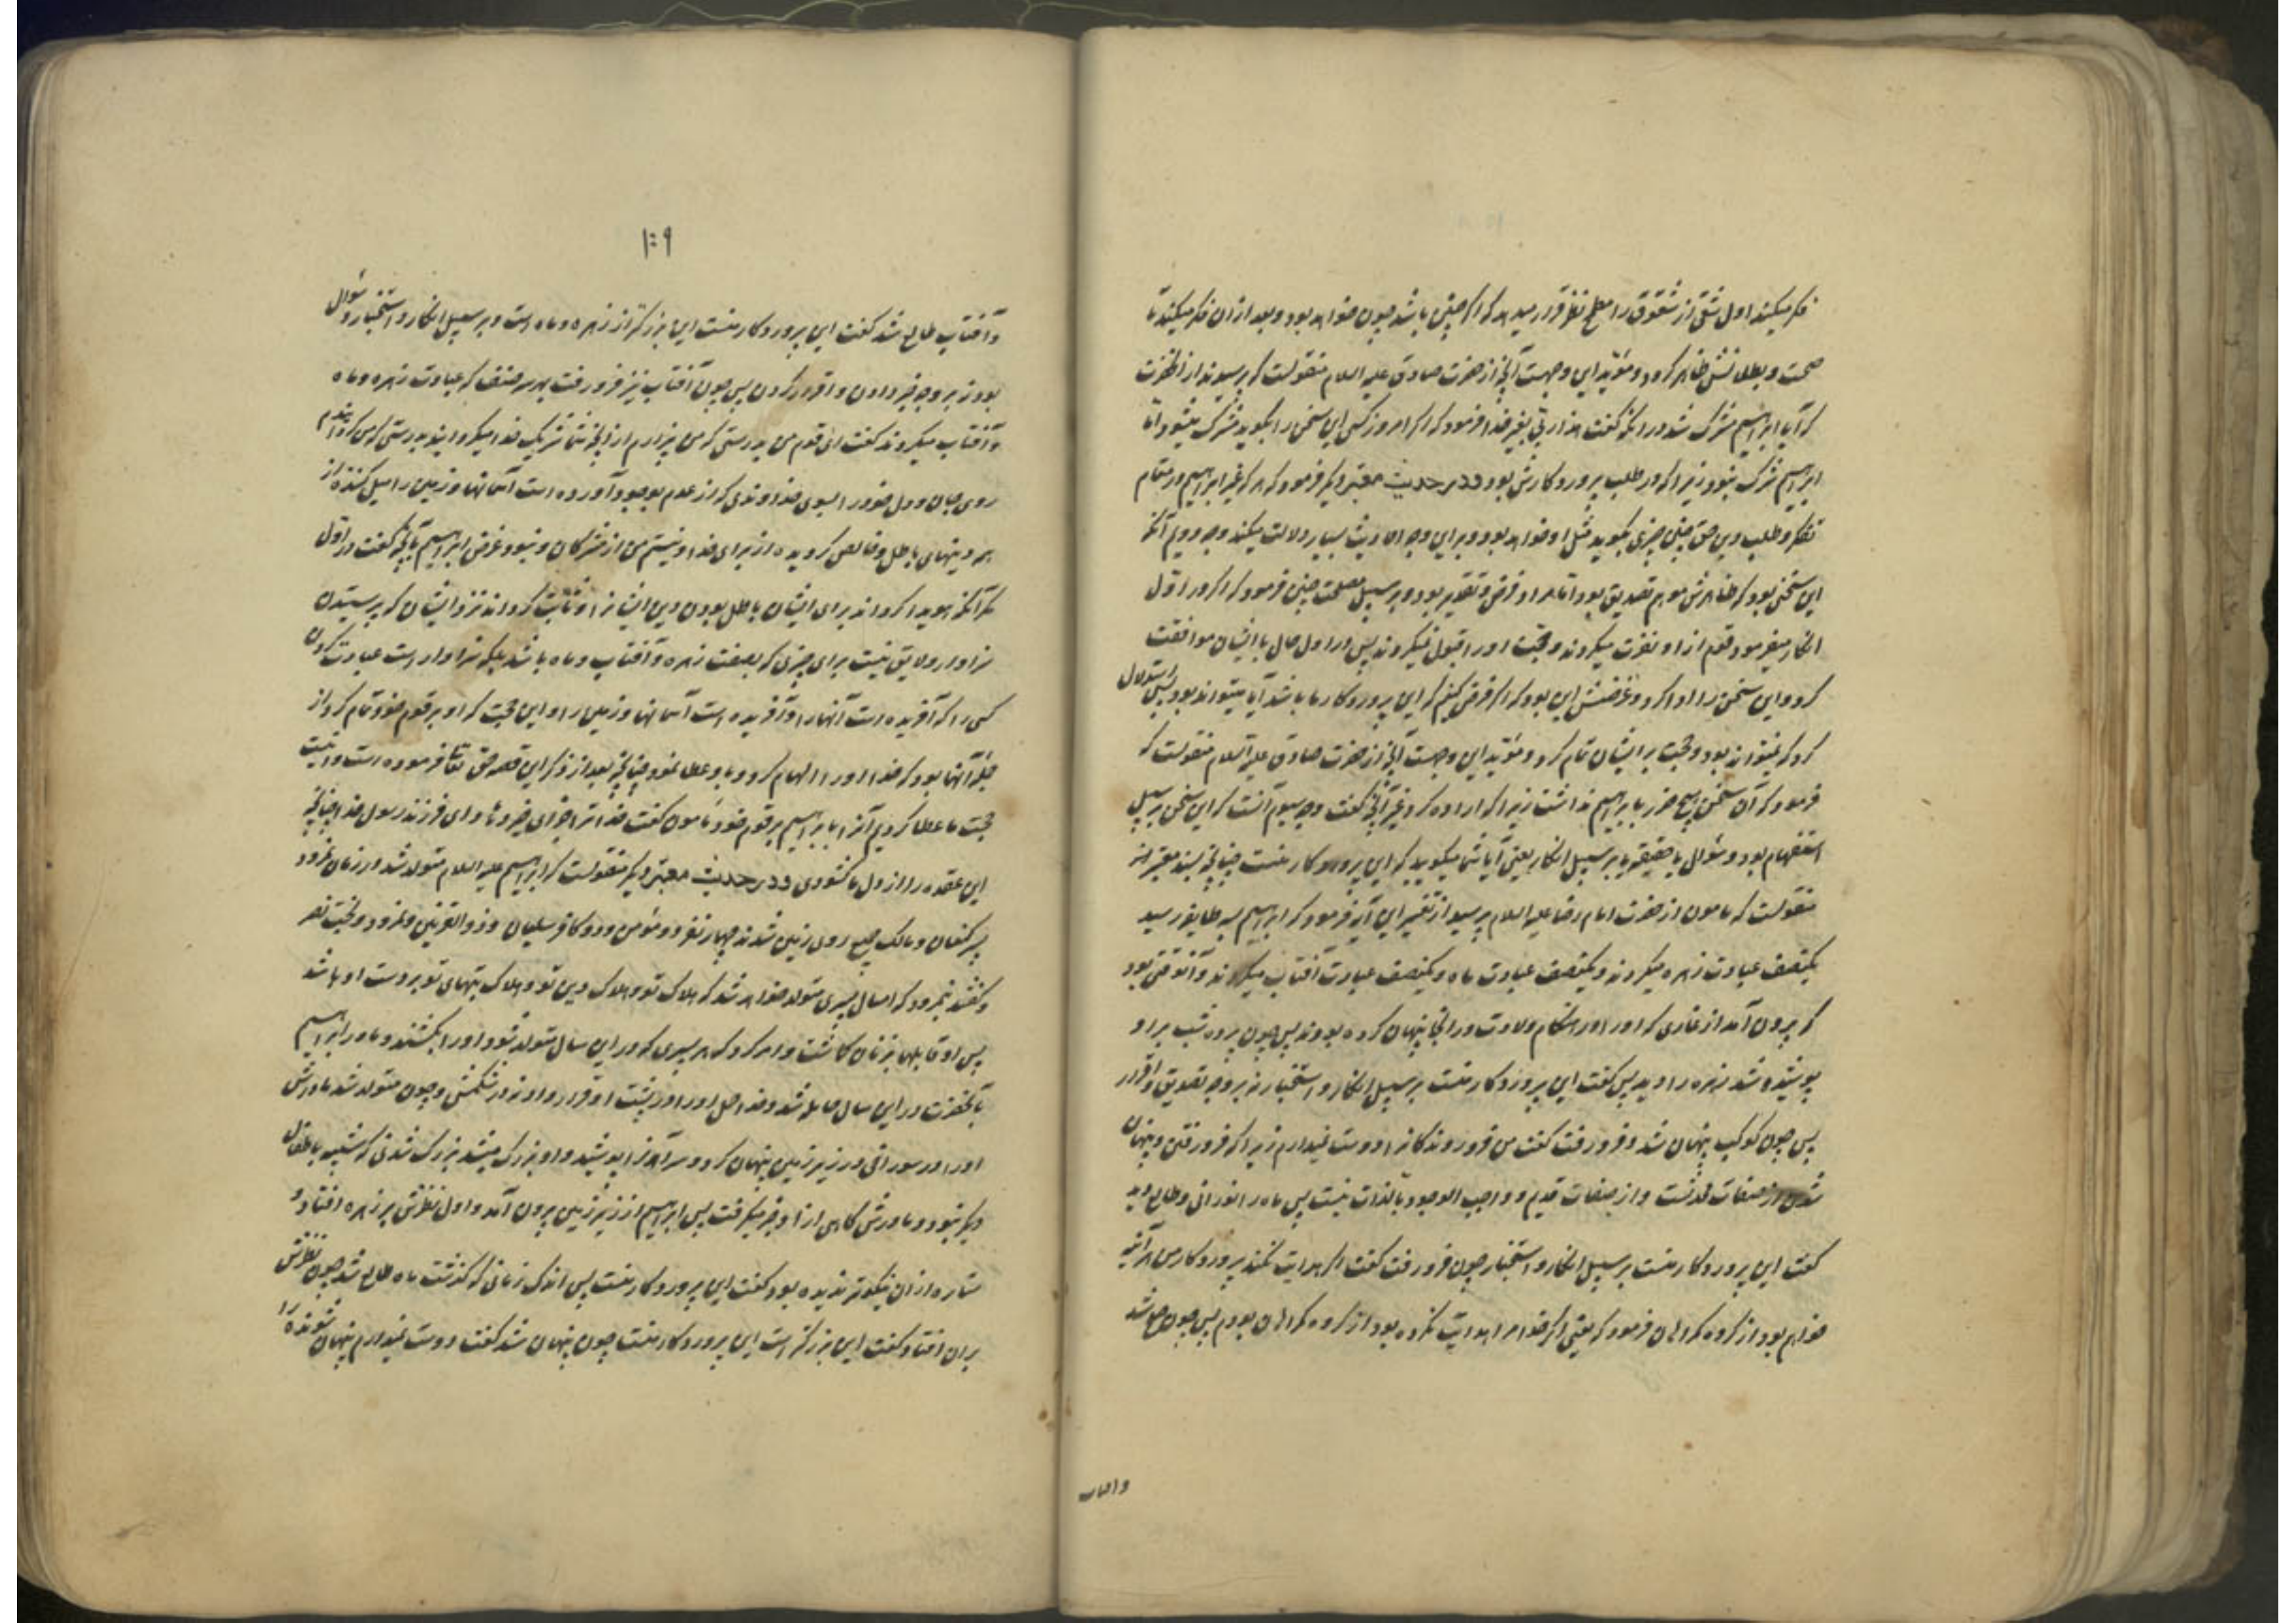 فکر میکند اول شقی از شقوق را مطمح نظر قرار میدهد که اگر چنین باشد چون خواهد بود و بعد از ان فکر میکند تا
صحت و بطلانش ظاهر کردد و مؤید این وجهست آنچه از حضرت صادق علیه السلام منقولست که پرسیدند از انحضرت
که آیا ابراهیم مشرک شد در انکه گفت هذا ربی بغیر خدا فرمود که اگر امروز کسی این سخن را بگوید مشرک میشود اما
ابراهیم مشرک نبود زیرا که در طلب پروردکارش بود و در حدیث معتبر دیگر فرمود که هر که غیر ابراهیم در مقام
تفکر و طلب دین حق چنین چیزی بگوید مثل او خواهد بود و بر این وجه احادیث بسیار دلالت میکند وجه دویم آنکه
این سخنی بود که ظاهرش موهم تصدیق بود اما مراد فرض و تقدیر بود و بر سبیل مصلحت چنین فرمود که اگر در اول
انکار میفرمود قوم از او نفرت میکردند و حجت او را قبول نمیکردند پس در اول حال با ایشان موافقت
کرد و این سخن را ادا کرد و غرضش این بود که اگر فرض کنیم که این پروردکار ما باشد آیا میتواند بود پس استدلال
کرد که نمیتواند بود و حجت بر ایشان تمام کرد و مؤید این وجهست آنچه از حضرت صادق علیه السلام منقولست که
فرمود که آن سخن هیچ ضرر بابراهیم نداشت زیرا که اراده کرد غیر آنچه گفت وجه سیوم آنست که این سخن بر سبیل
استفهام بود و سؤال یا حقیقة یا بر سبیل انکار یعنی آیا شما میگویید که این پروردکار منست چنانچه بسند معتبر
منقولست که مامون از حضرت امام رضا علیه السلام پرسید از تفسیر این آیه فرمود که ابراهیم به سه طایفه رسید
یکصنف عبادت زهره میکردند و یکصنف عبادت ماه و یکصنف عبادت آفتاب میکردند و آنوقتی بود
که بیرون آمد از غاری که او را در هنکام ولادت در انجا پنهان کرده بودند پس چون پرده شب بر او
پوشیده شد زهره را دید پس گفت این پروردکار منست بر سبیل انکار و استخبار نه بر وجه تصدیق و اقرار
پس چون کوکب پنهان شد و فرو رفت گفت من فروروندکانرا دوست نمیدارم زیرا که فرو رفتن و پنهان
شدن از صفات محدثست و از صفات قدیم و واجب الوجود بالذات نیست پس ماه را نورانی و طالع دید
گفت این پروردکار منست بر سبیل انکار و استخبار چون فرو رفت گفت اگر هدایت نکند پروردکار من هر آینه
خواهم بود از کروه کمراهان فرمود که یعنی اگر خدا مرا هدایت نکرده بود از کروه کمراهان بودم پس چون صبح شد
وافتاب
۱۰۹
و آفتاب طالع شد گفت این پروردکار منست این بزرکتر از زهره و ماه است و بر سبیل انکار و استخبار و سؤال
بود نه بر وجه خبر دادن و اقرار کردن پس چون آفتاب نیز فرو رفت بهر سه صنف که عبادت زهره و ماه
و آفتاب میکردند گفت ای قوم من بدرستی که من بیزارم از آنچه شما شریک خدا میکردانید بدرستی که من کردانیدم
روی جان و دل خود را بسوی خداوندی که از عدم بوجود آورده است آسمانها و زمین را میل کننده از
همه دینهای باطل و خالص کردیده از برای خدا و نیستم من از مشرکان و نبود غرض ابراهیم بآنچه گفت در اول
مکر آنکه هویدا کرداند برای ایشان باطل بودن دین ایشانرا و ثابت کرداند نزد ایشان که پرستیدن
سزاوار و لایق نیست برای چیزی که بصفت زهره و آفتاب و ماه باشد بلکه سزاوار است عبادت کردن
کسی را که آفریده است آنها را و آفریده است آسمانها و زمین را و این حجت که او بر قوم خود تمام کرد از
جمله آنها بود که خدا او را الهام کرد و باو عطا نمود چنانچه بعد از ذکر این قصه حق تعالی فرموده است و اینست
حجت ما عطا کردیم آنرا بابراهیم بر قوم خود مامون گفت خدا ترا جزای خیر دهاد ای فرزند رسول خدا چنانچه
این عقده را از دل ما کشودی و در حدیث معتبر دیگر منقولست که ابراهیم علیه السلام متولد شد در زمان نمرود
پسر کنعان و مالک جمیع روی زمین شدند چهار نفر دو مؤمن و دو کافر سلیمان و ذو القرنین و نمرود و بخت نصر
و گفتند بنمرود که امسال پسری متولد خواهد شد که هلاک تو و هلاک دین تو و هلاک بتهای تو بر دست او باشد
پس او قابلها بر زنان کماشت و امر کرد که هر پسری که در این سال متولد شود او را بکشند و مادر ابراهیم
بآنحضرت در این سال حامله شد و خدا حمل او را در پشت او قرار داد نه در شکمش و چون متولد شد مادرش
او را در سوراخی در زیر زمین پنهان کرد و سر آنرا پوشید و او بزرک میشد بزرک شدنی که شبیه باطفال
دیگر نبود و مادرش کاهی از او خبر میگرفت پس ابراهیم از زیر زمین بیرون آمد و اول نظرش بر زهره افتاد و
ستاره از ان نیکوتر ندیده بود گفت این پروردکار منست پس اندک زمانی که گذشت ماه طالع شد چون نظرش
بران افتاد گفت این بزرکتر است این پروردکار منست چون پنهان شد گفت دوست نمیدارم پنهان شونده را